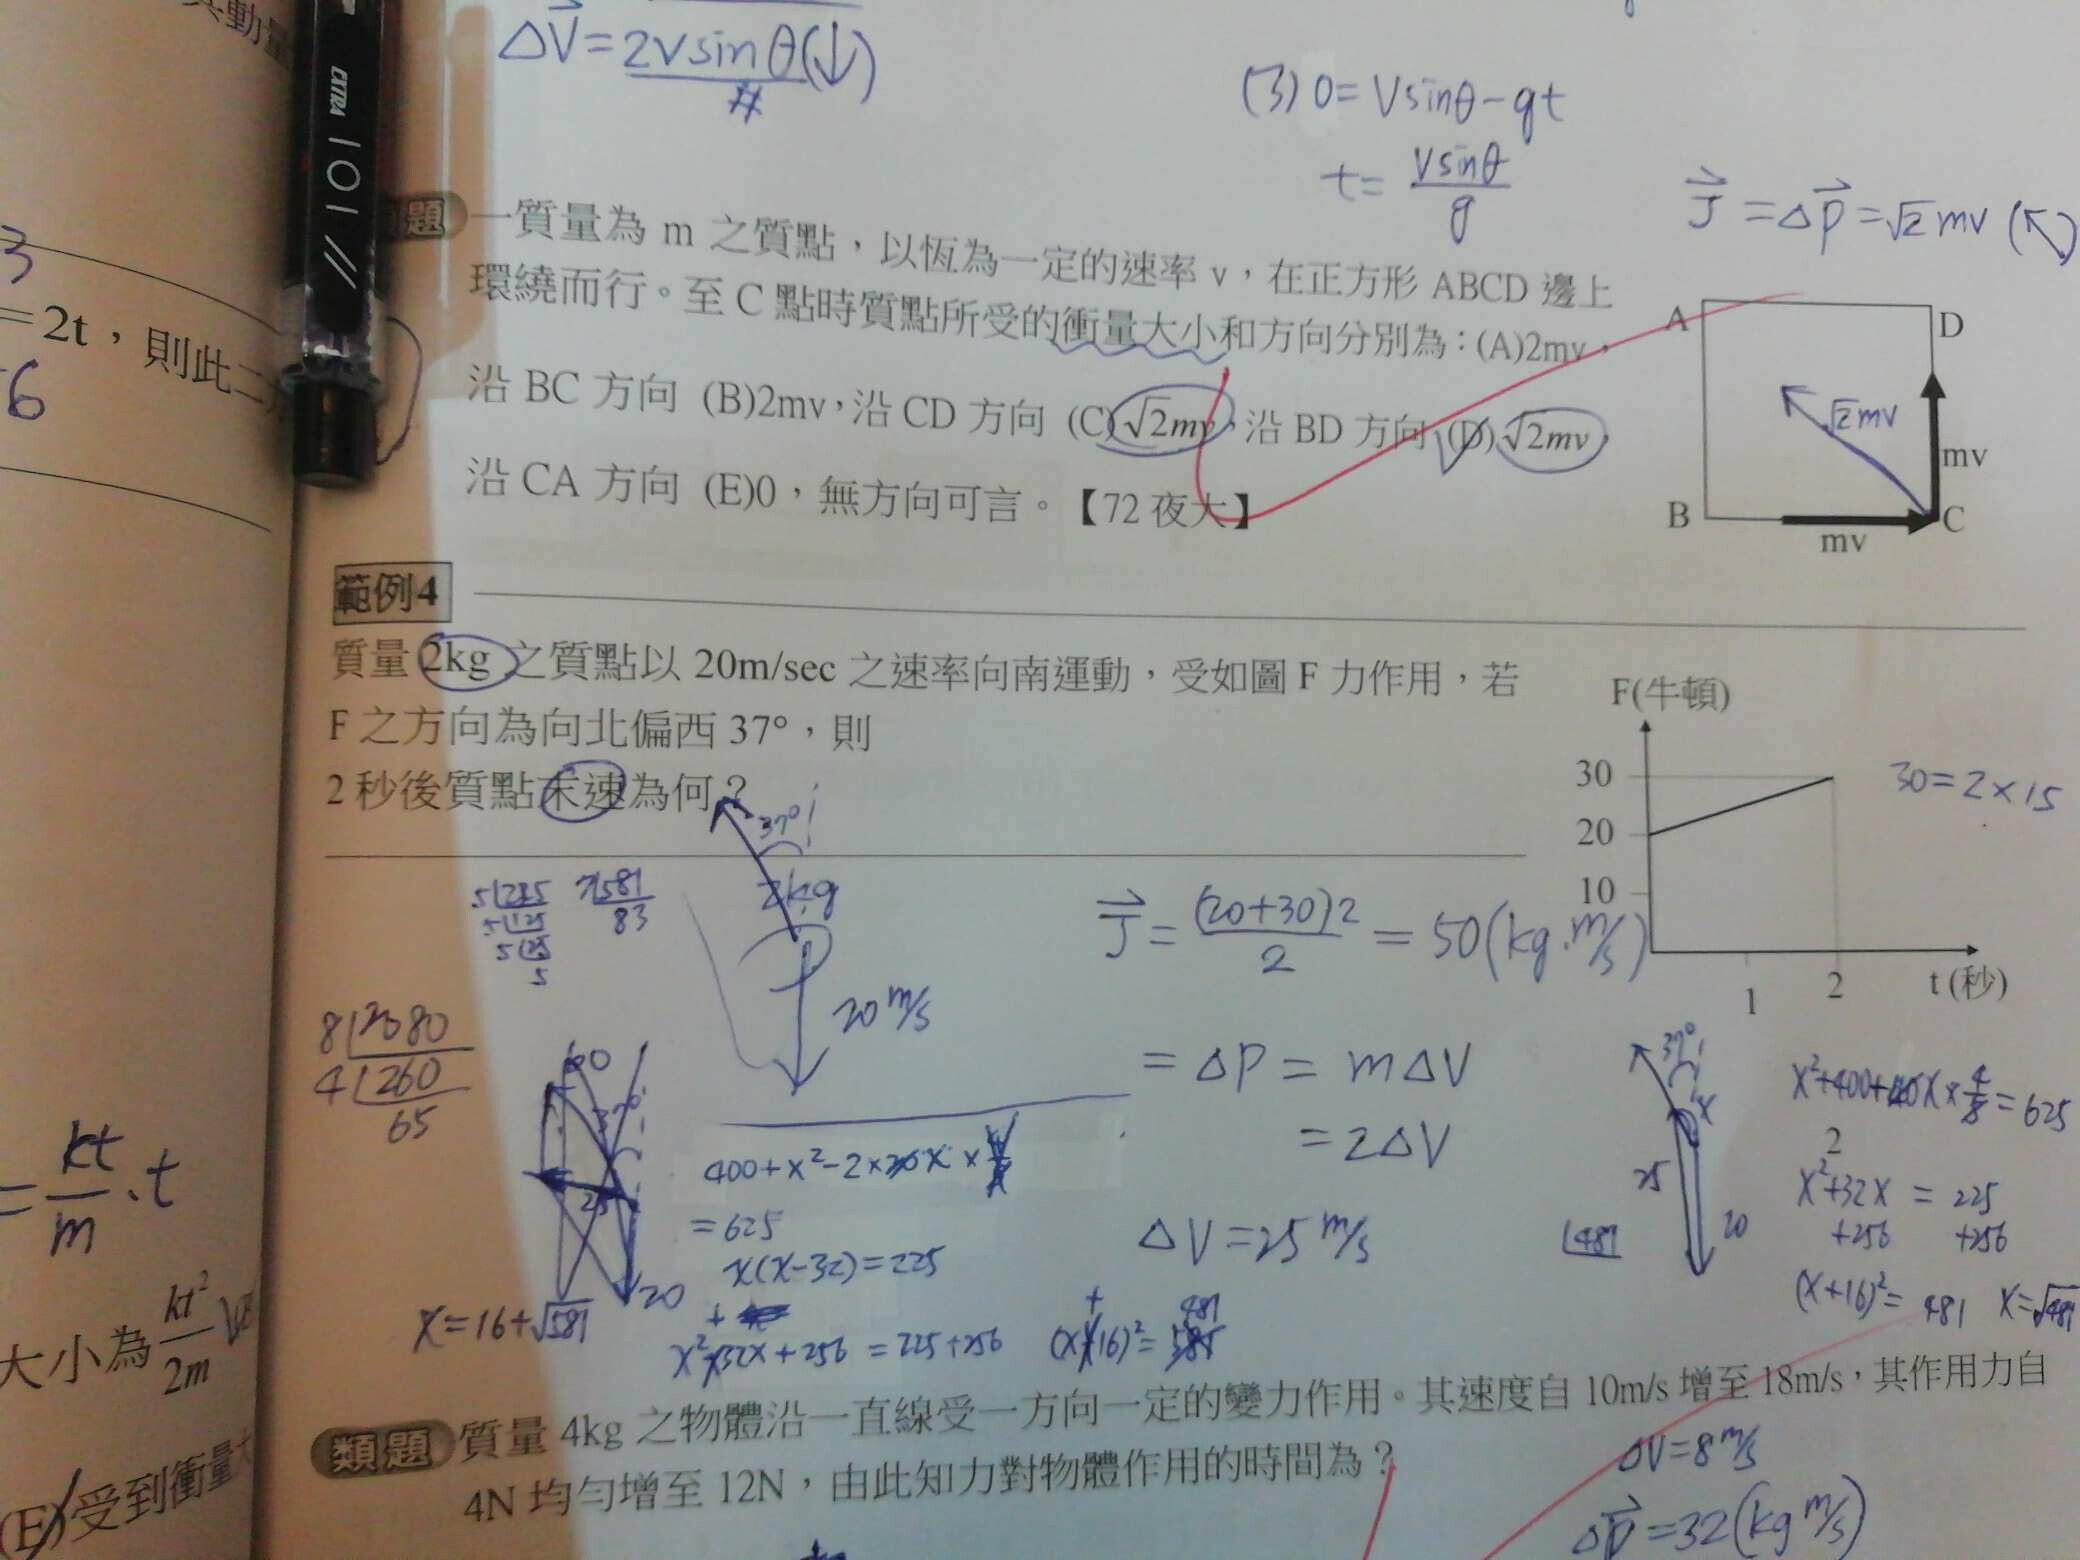 ΔV⃗=2vsinθ(↓)
(3) 0=Vsinθ-gt
t= vsinθ/g
J⃗=ΔP⃗=√2mv(↖)
EXTRA 101
3
=2t，則此二
6
題 一質量為 m 之質點，以恆為一定的速率 v，在正方形 ABCD 邊上
環繞而行。至 C 點時質點所受的衝量大小和方向分別為：(A)2mv，
沿 BC 方向 (B)2mv，沿 CD 方向 (C)√2mv，沿 BD 方向 (D)√2mv，
沿 CA 方向 (E)0，無方向可言。【72 夜大】
A D
√2mv
mv
B C
mv
範例4
質量 2kg 之質點以 20m/sec 之速率向南運動，受如圖 F 力作用，若
F 之方向為向北偏西 37°，則
2 秒後質點末速為何？
F(牛頓)
30
20
10
1 2 t(秒)
30=2×15
37°
2kg
20 m/s
7|581
83
5
J⃗= (20+30)2/2 = 50(kg·m/s)
=ΔP=mΔV
=2ΔV
ΔV=25 m/s
8|2080
4|260
65
37°
25
20
400+x²-2×20x×
=625
x(x-32)=225
x=16+√581
x²+32x+256=225+256
(x+16)²=481
37°
x
25
20
481
x²+400+40x×4/5=625
x²+32x=225
+256 +256
(x+16)²=481 x=√481
=kt/m·t
大小為 kt²/2m
(E)受到衝量
類題 質量 4kg 之物體沿一直線受一方向一定的變力作用。其速度自 10m/s 增至 18m/s，其作用力自
4N 均勻增至 12N，由此知力對物體作用的時間為？
ΔV=8m/s
ΔP⃗=32(kg m/s)